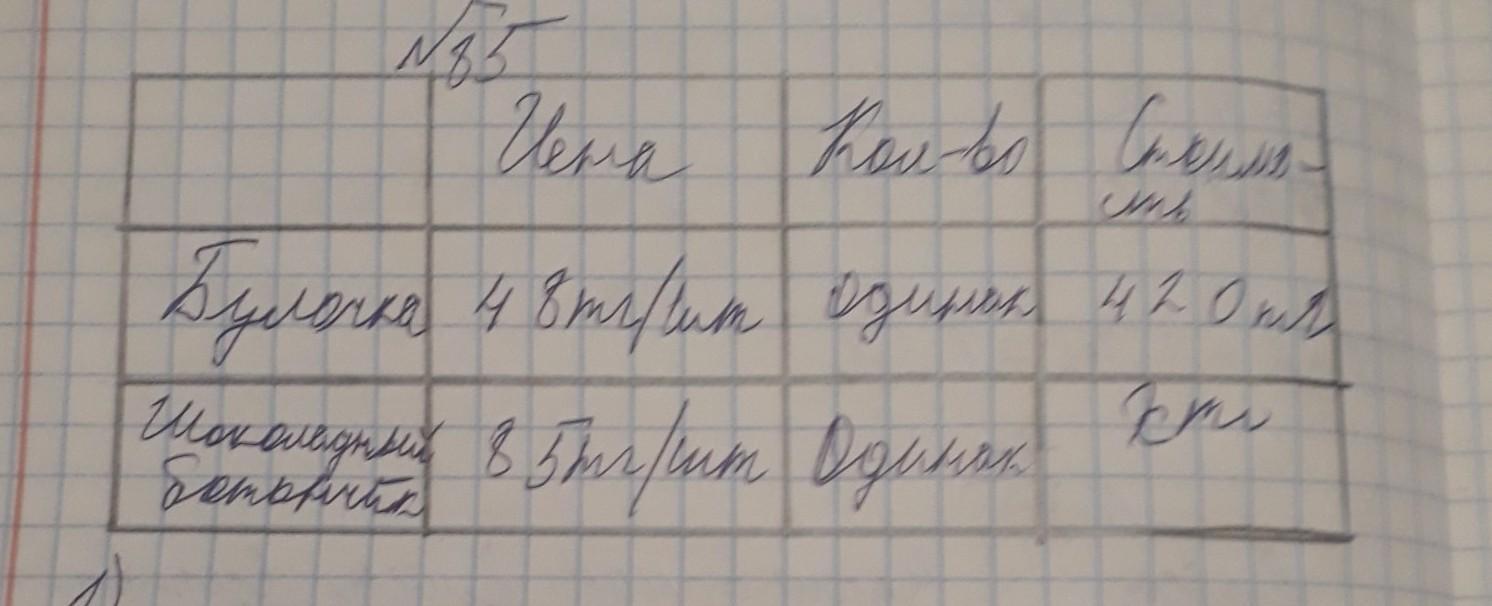 №85
Цена Кол-во Стоимо-
сть
Булочка 48тг/шт одинак 420тг
Шоколадный 85тг/шт Одинак ?тг
батончик
1)